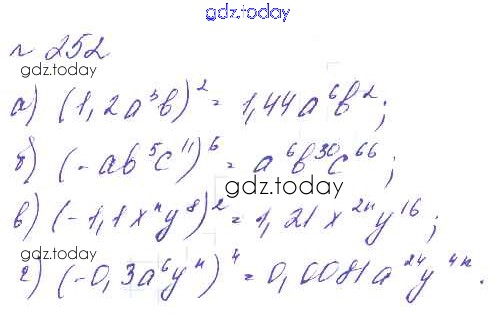 gdz.today
№ 252
gdz.today
а) (1,2a³b)² = 1,44a⁶b²;
gdz.today
б) (-ab⁵c¹¹)⁶ = a⁶b³⁰c⁶⁶;
gdz.today
в) (-1,1xⁿy⁸)² = 1,21x²ⁿy¹⁶;
gdz.today
г) (-0,3a⁶yⁿ)⁴ = 0,0081a²⁴y⁴ⁿ.
gdz.today